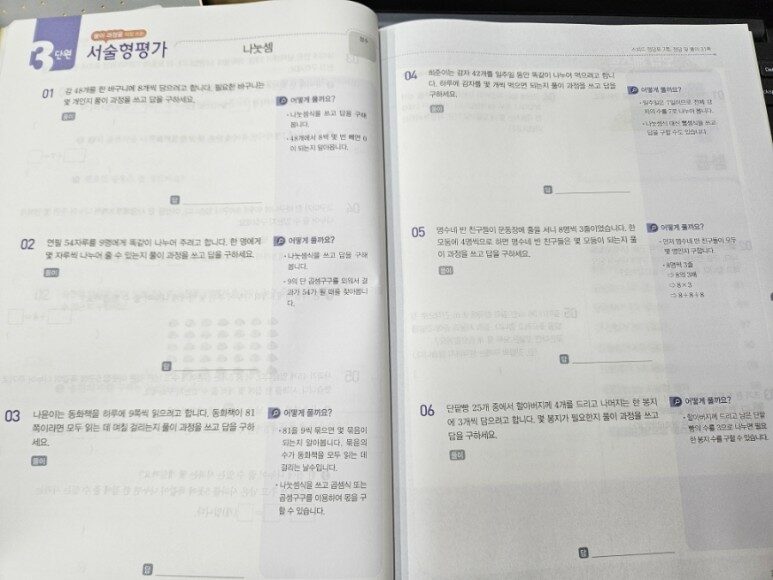 3 단원
풀이 과정을
서술형평가
나눗셈
점수
01 감 48개를 한 바구니에 8개씩 담으려고 합니다. 필요한 바구니는
몇 개인지 풀이 과정을 쓰고 답을 구하세요.
풀이
답
어떻게 풀까요?
• 나눗셈식을 쓰고 답을 구해
봅니다.
• 48에서 8씩 몇 번 빼면 0
이 되는지 알아봅니다.
02 연필 54자루를 9명에게 똑같이 나누어 주려고 합니다. 한 명에게
몇 자루씩 나누어 줄 수 있는지 풀이 과정을 쓰고 답을 구하세요.
풀이
답
어떻게 풀까요?
• 나눗셈식을 쓰고 답을 구해
봅니다.
• 9의 단 곱셈구구를 외워서 결
과가 54가 될 때를 찾아봅니
다.
03 나윤이는 동화책을 하루에 9쪽씩 읽으려고 합니다. 동화책이 81
쪽이라면 모두 읽는 데 며칠 걸리는지 풀이 과정을 쓰고 답을 구하
세요.
풀이
답
어떻게 풀까요?
• 81을 9씩 묶으면 몇 묶음이
되는지 알아봅니다. 묶음의
수가 동화책을 모두 읽는 데
걸리는 날수입니다.
• 나눗셈식을 쓰고 곱셈식 또는
곱셈구구를 이용하여 몫을 구
할 수 있습니다.
정답 및 풀이 31쪽
04 희준이는 감자 42개를 일주일 동안 똑같이 나누어 먹으려고 합니
다. 하루에 감자를 몇 개씩 먹으면 되는지 풀이 과정을 쓰고 답을
구하세요.
풀이
답
어떻게 풀까요?
• 일주일은 7일이므로 전체 감
자의 수를 7로 나누어 봅니다.
• 나눗셈식 대신 뺄셈식을 쓰고
답을 구할 수도 있습니다.
05 명수네 반 친구들이 운동장에 줄을 서니 8명씩 3줄이었습니다. 한
모둠에 4명씩으로 하면 명수네 반 친구들은 몇 모둠이 되는지 풀
이 과정을 쓰고 답을 구하세요.
풀이
답
어떻게 풀까요?
• 먼저 명수네 반 친구들이 모두
몇 명인지 구합니다.
• 8명씩 3줄
⇨ 8의 3배
⇨ 8×3
⇨ 8+8+8
06 단팥빵 25개 중에서 할아버지께 4개를 드리고 나머지는 한 봉지
에 3개씩 담으려고 합니다. 몇 봉지가 필요한지 풀이 과정을 쓰고
답을 구하세요.
풀이
답
어떻게 풀까요?
• 할아버지께 드리고 남은 단팥
빵의 수를 3으로 나누면 필요
한 봉지 수를 구할 수 있습니다.